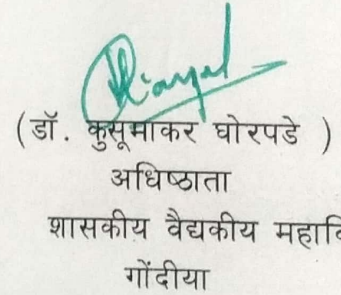 (डॉ. कुसूमाकर घोरपडे )
अधिष्ठाता
शासकीय वैद्यकीय महावि
गोंदीया